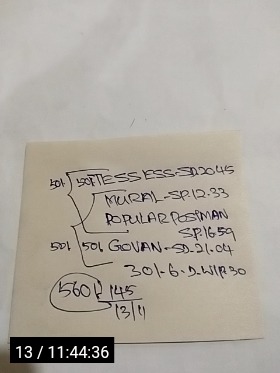 50% 50% TESSESS-SD.2045
MURAL-SP.12.33
POPULAR POSTMAN
SP.16.59
50% 50% GOVAN-SD-21.04
30%-6-D.W/P.30
560%
145
13/11
13 / 11:44:36